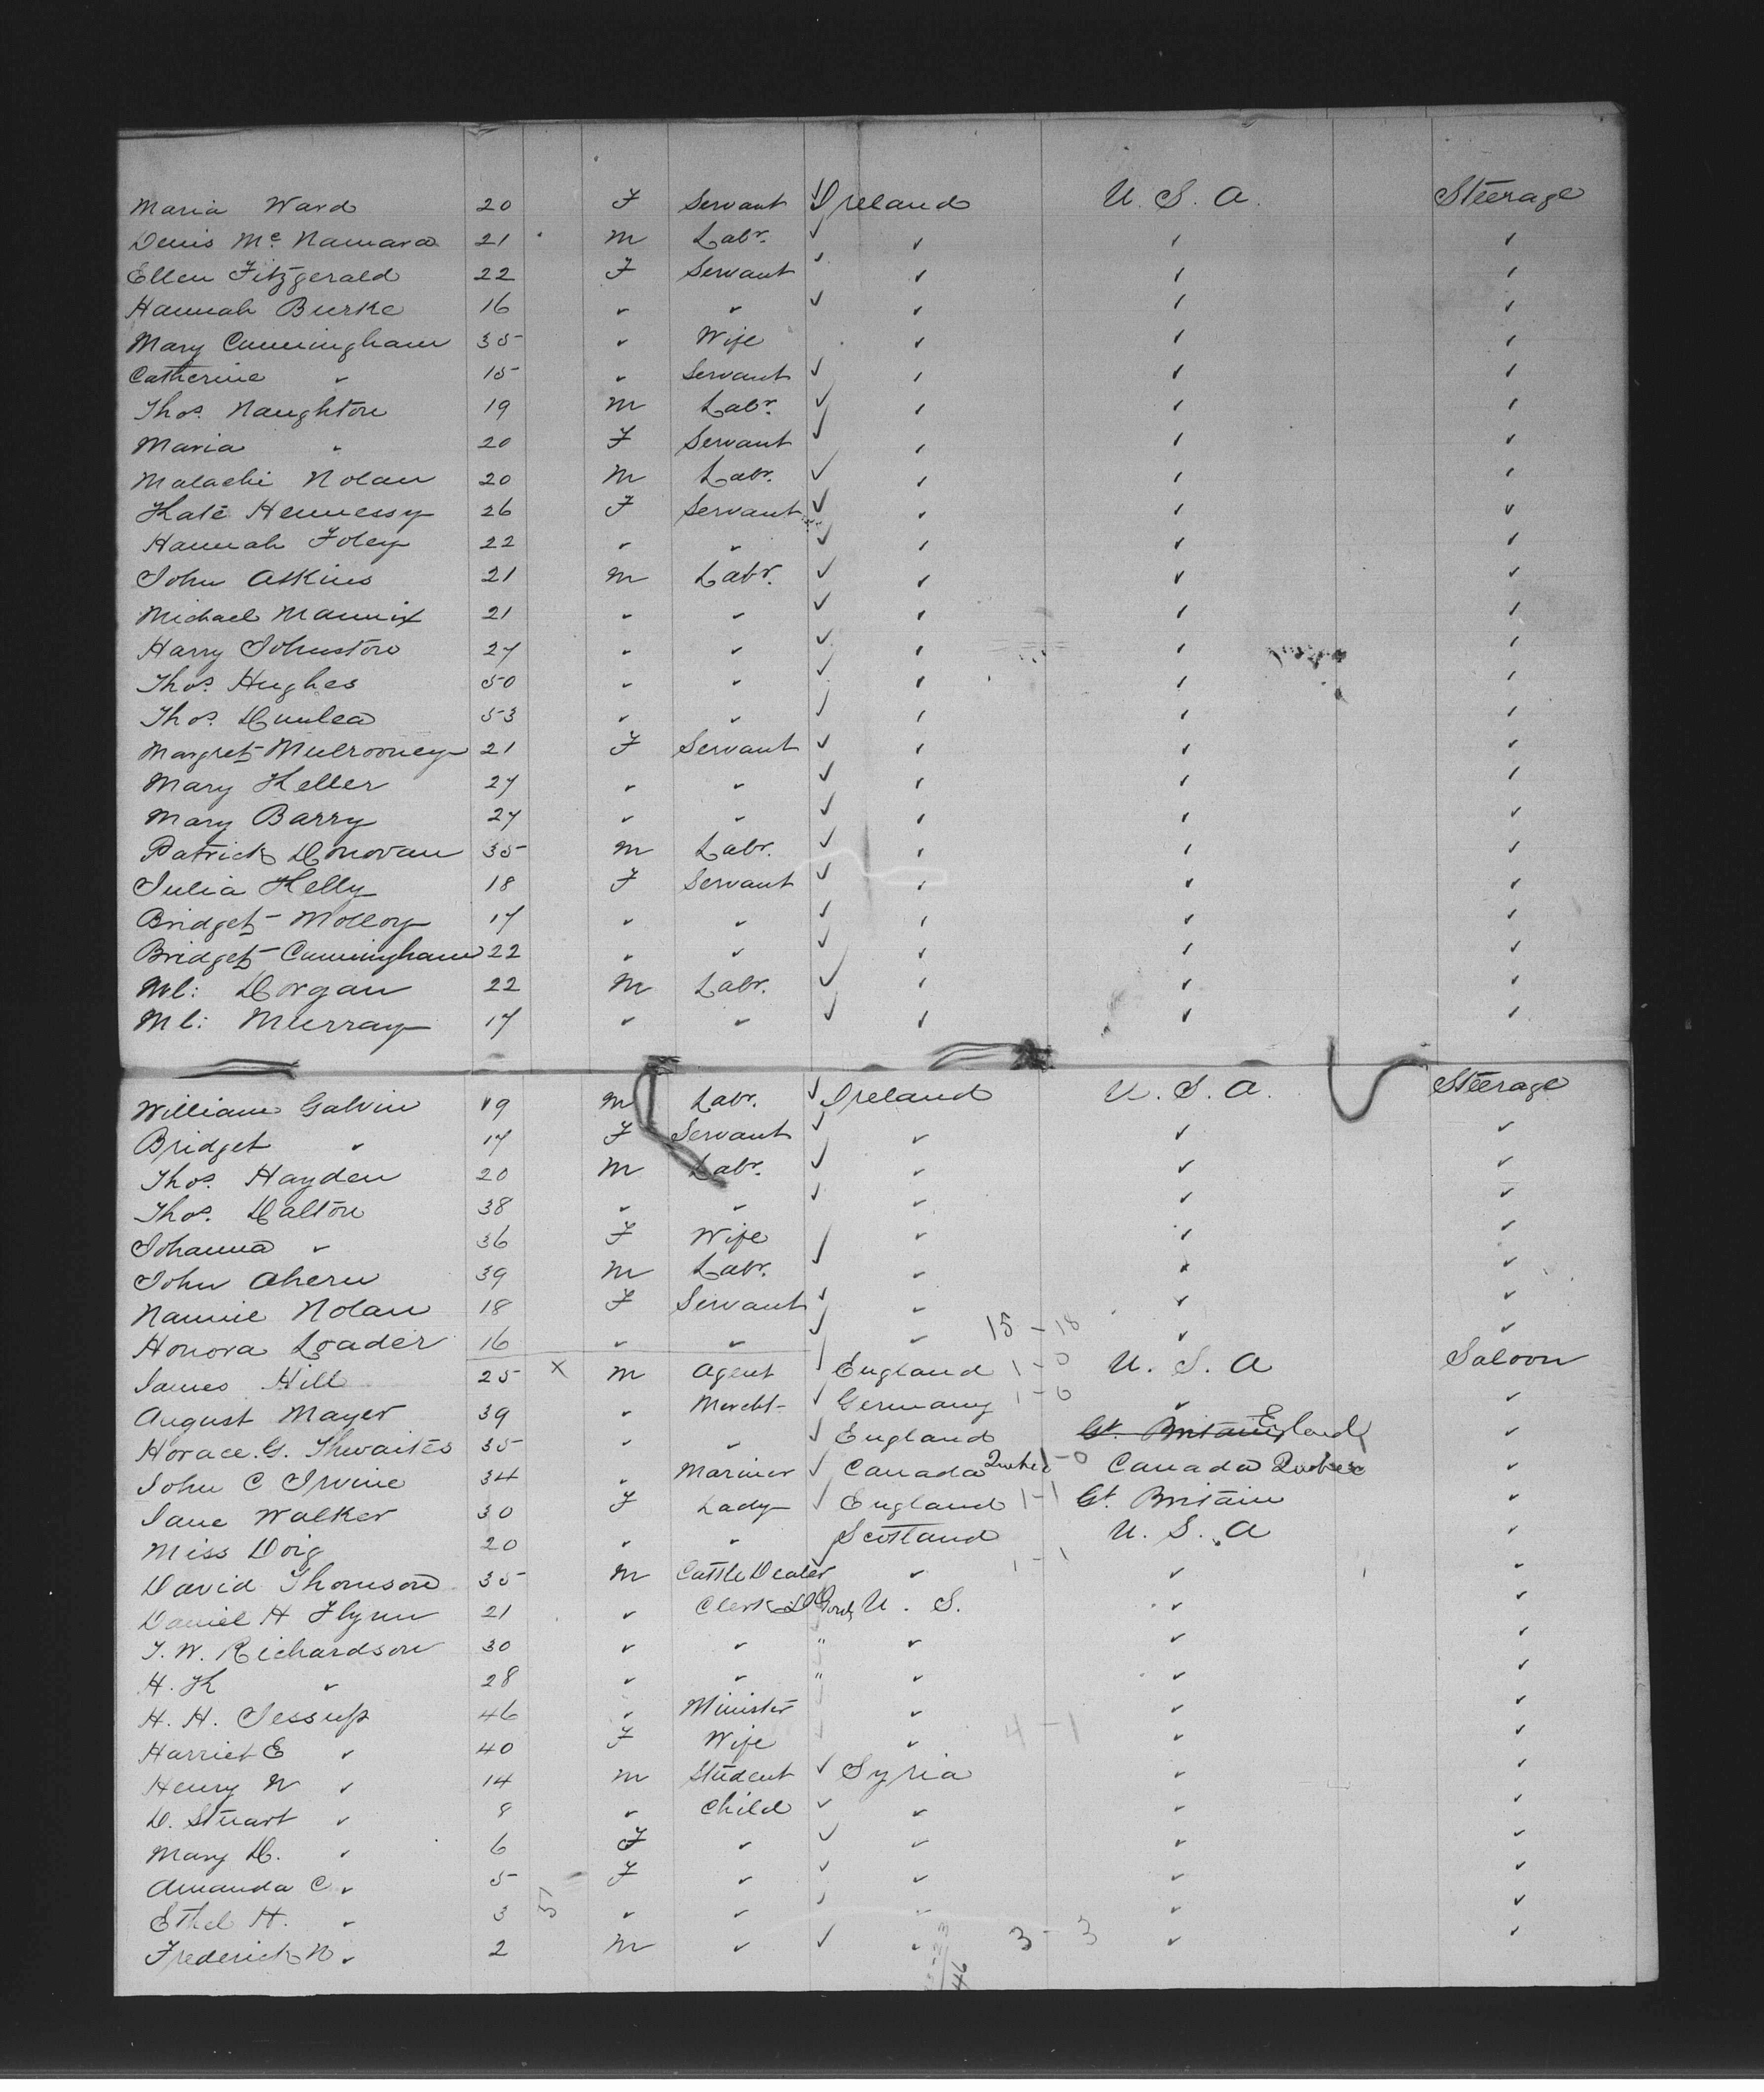 Maria Ward 20 F Servant ✓ Ireland U. S. A. Steerage
Denis Mc Namara 21 M Labr. ✓ ✓ ✓ ✓
Ellen Fitzgerald 22 F Servant ✓ ✓ ✓ ✓
Hannah Burke 16 ✓ ✓ ✓ ✓ ✓ ✓
Mary Cunningham 35 ✓ Wife ✓ ✓ ✓
Catherine ✓ 15 ✓ Servant ✓ ✓ ✓ ✓
Thos. Naughton 19 M Labr. ✓ ✓ ✓ ✓
Maria ✓ 20 F Servant ✓ ✓ ✓ ✓
Malachi Nolan 20 M Labr. ✓ ✓ ✓ ✓
Kate Hennessy 26 F Servant ✓ ✓ ✓ ✓
Hannah Foley 22 ✓ ✓ ✓ ✓ ✓ ✓
John Atkins 21 M Labr. ✓ ✓ ✓ ✓
Michael Mannix 21 ✓ ✓ ✓ ✓ ✓ ✓
Harry Johnston 27 ✓ ✓ ✓ ✓ ✓ ✓
Thos. Hughes 50 ✓ ✓ ✓ ✓ ✓ ✓
Thos. Dunlea 53 ✓ ✓ ✓ ✓ ✓ ✓
Margret Mulrooney 21 F Servant ✓ ✓ ✓ ✓
Mary Keller 27 ✓ ✓ ✓ ✓ ✓ ✓
Mary Barry 27 ✓ ✓ ✓ ✓ ✓ ✓
Patrick Donovan 35 M Labr. ✓ ✓ ✓ ✓
Julia Kelly 18 F Servant ✓ ✓ ✓ ✓
Bridget Molloy 17 ✓ ✓ ✓ ✓ ✓ ✓
Bridget Cunningham 22 ✓ ✓ ✓ ✓ ✓ ✓
Ml: Dorgan 22 M Labr. ✓ ✓ ✓ ✓
Ml: Murray 17 ✓ ✓ ✓ ✓ ✓ ✓
William Galvin 19 M Labr. ✓ Ireland U. S. A. Steerage
Bridget ✓ 17 F Servant ✓ ✓ ✓ ✓
Thos. Hayden 20 M Labr. ✓ ✓ ✓ ✓
Thos. Dalton 38 ✓ ✓ ✓ ✓ ✓ ✓
Johanna ✓ 36 F Wife ✓ ✓ ✓ ✓
John Ahern 39 M Labr. ✓ ✓ ✓
Nannie Nolan 18 F Servant ✓ ✓ ✓ ✓
Honora Loader 16 ✓ ✓ ✓ ✓ 15 - 18 ✓ ✓
James Hill 25 X M Agent ✓ England 1 - 0 U. S. A Saloon
August Mayer 39 ✓ Morcht ✓ Germany 1 - 0 ✓ ✓
Horace. G. Thwaites 35 ✓ ✓ ✓ England Gt. Britain England ✓
John C Irvine 34 ✓ Mariner ✓ Canada Quebec 1-0 Canada Quebec ✓
Jane Walker 30 F Lady ✓ England 1-1 Gt. Britain ✓
Miss Doig 20 ✓ ✓ Scotland U. S. A ✓
David Thomson 35 M Cattle Dealer ✓ 1 - 1 ✓ ✓
Daniel H Flynn 21 ✓ Clerk D Goods U. S. ✓ ✓
T. W. Richardson 30 ✓ ✓ " ✓ ✓ ✓
H. K ✓ 28 ✓ ✓ " ✓ ✓ ✓
H. H. Jessup 46 ✓ Minister ✓ ✓ ✓
Harriet E ✓ 40 F Wife ✓ ✓ 4 - 1 ✓ ✓
Henry W ✓ 14 M Student ✓ Syria ✓ ✓
D. Stuart ✓ 8 ✓ Child ✓ ✓ ✓ ✓
Mary D. ✓ 6 F ✓ ✓ ✓ ✓ ✓
Amanda C. ✓ 5 F ✓ ✓ ✓ ✓ ✓
Ethel H. ✓ 3 57 ✓ ✓ ✓ ✓ ✓ ✓
Frederick N. ✓ 2 M ✓ ✓ ✓ 3 - 3 ✓ ✓
46